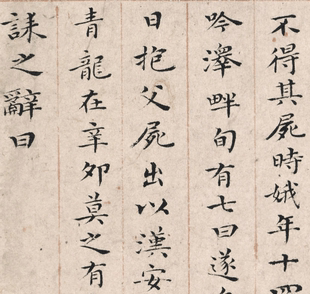 不得其屍時娥年十四
吟澤畔旬有七日遂
日抱父屍出以漢安
青龍在辛卯莫之有
誄之辭曰